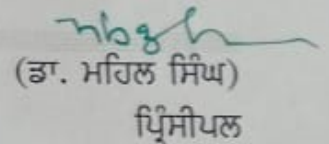 (ਡਾ. ਮਹਿਲ ਸਿੰਘ)
ਪ੍ਰਿੰਸੀਪਲ